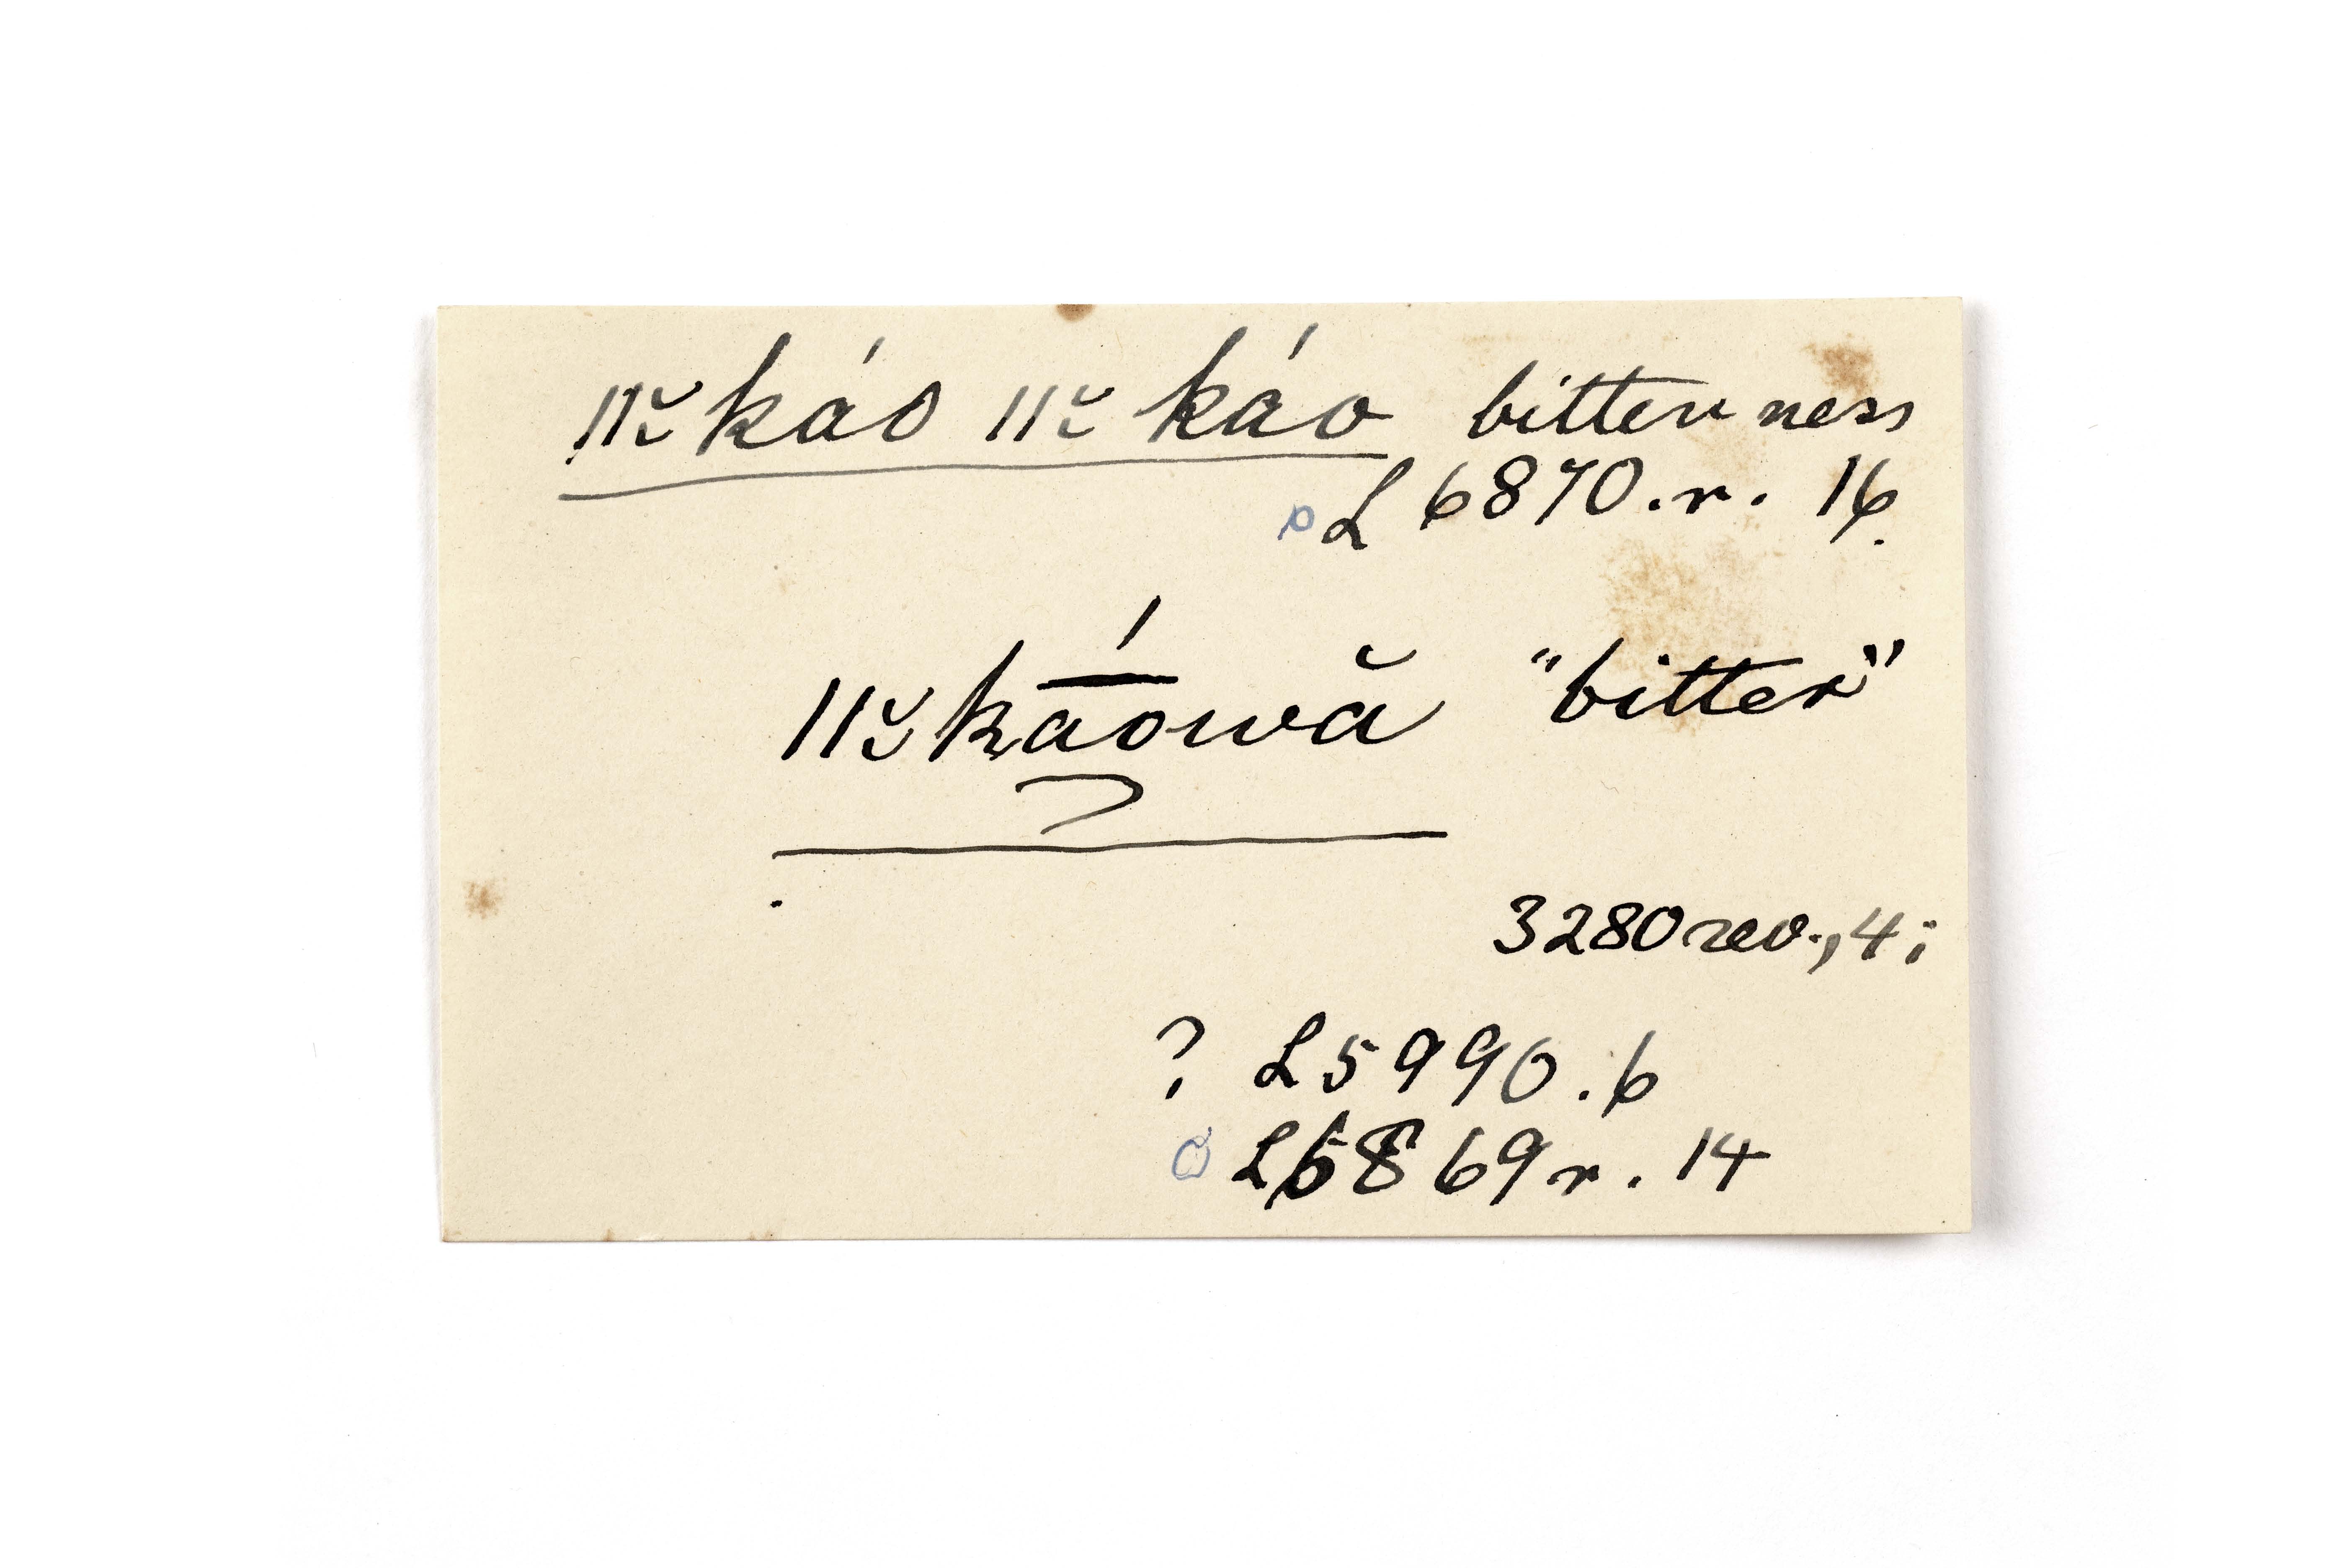 ǁ˘káo ǁ˘káo bitterness
o L 6870.r. 16.
ǁ˘kā́owă "bitter"
3280 rev., 4;
? L5990.6
o L6869 r. 14